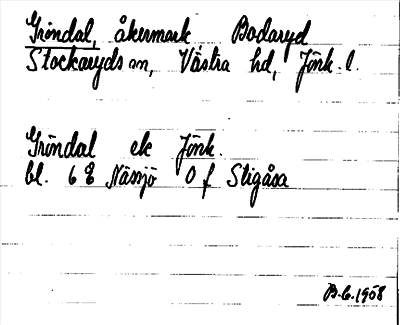 Gröndal, åkermark Bodaryd
Stockaryds sn, Västra hd, Jönk. l.
Gröndal ek Jönk.
bl. 6 E Nässjö O f Sligåsa
B.G.1958